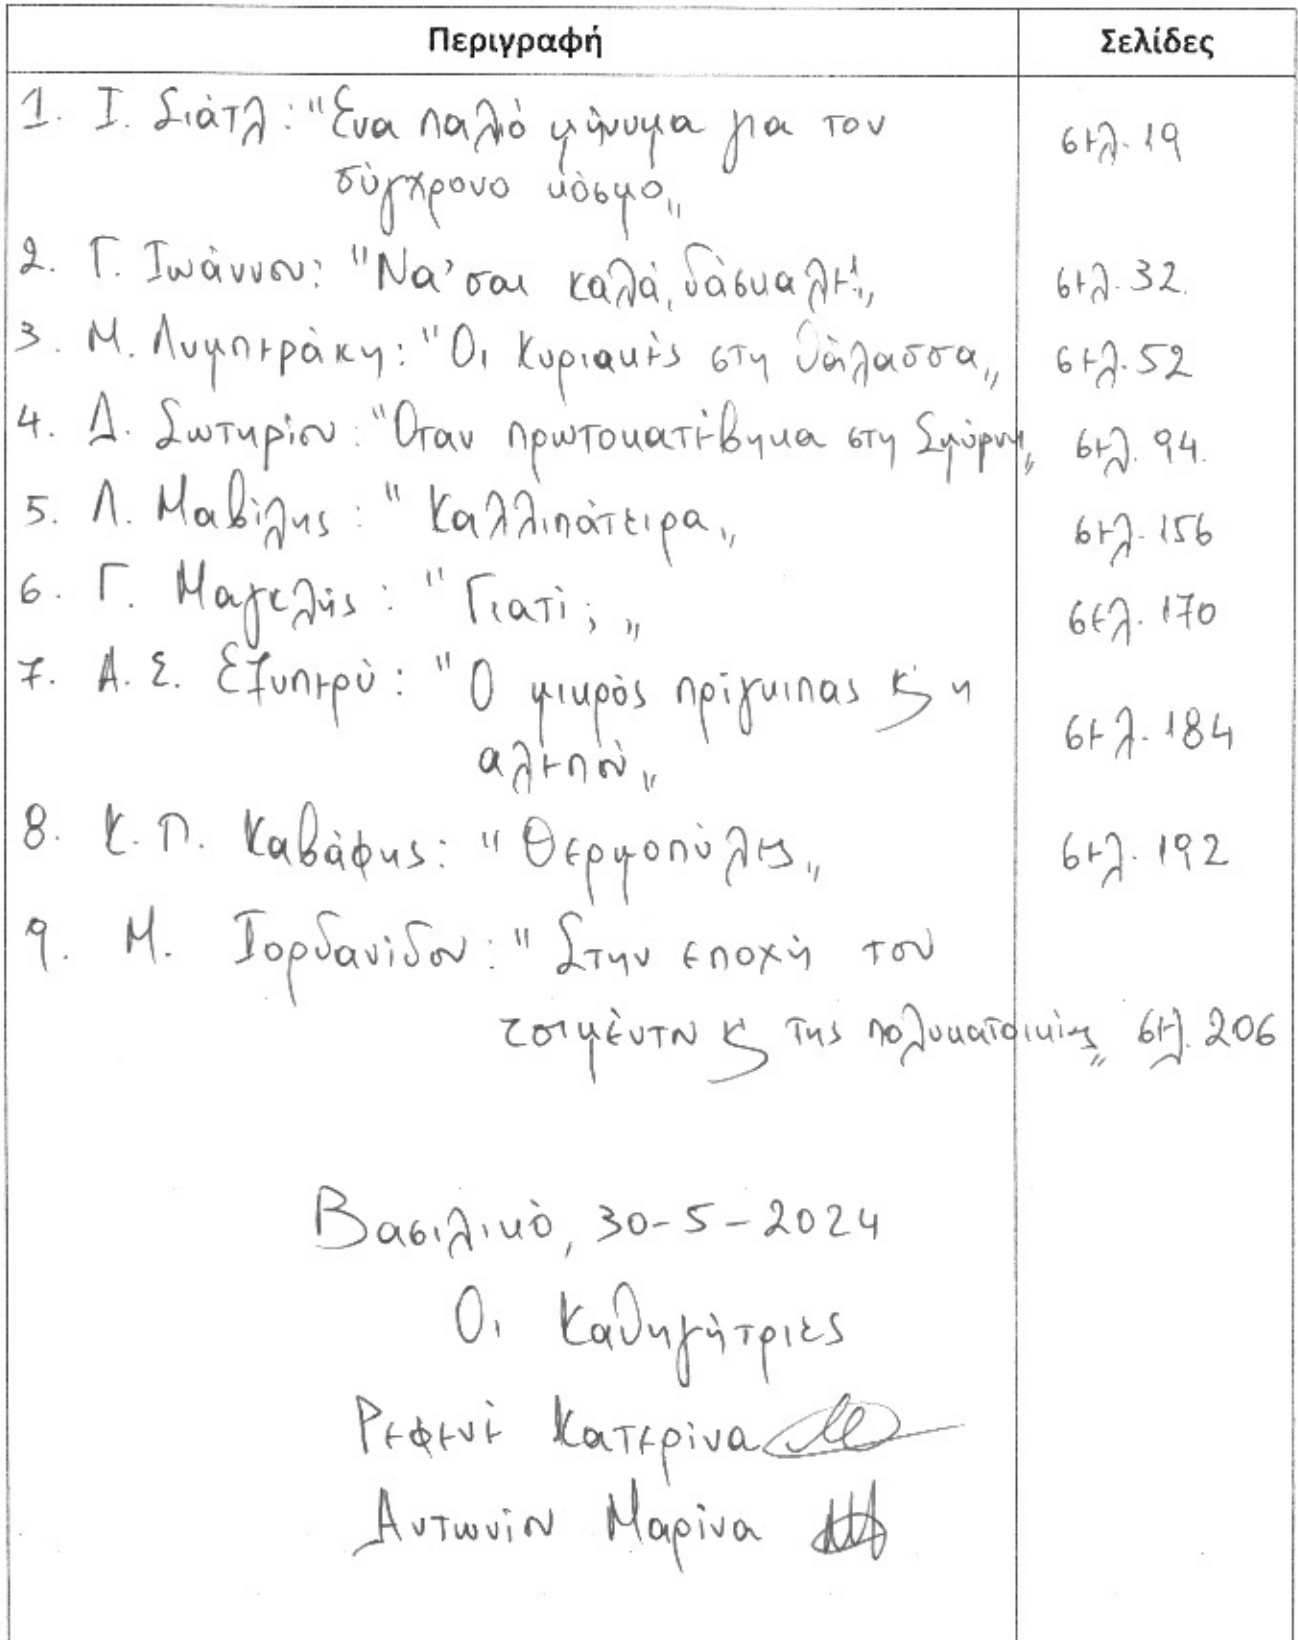 Περιγραφή Σελίδες
1. Ι. Σιάτλ: "Ένα παλιό μήνυμα για τον σελ. 19
σύγχρονο κόσμο„
2. Γ. Ιωάννου: "Να' σαι καλά, δάσκαλε!„ σελ. 32.
3. Μ. Λυμπεράκη: "Οι Κυριακές στη θάλασσα„ σελ. 52
4. Δ. Σωτηρίου: "Όταν πρωτοκατέβηκα στη Σμύρνη„ σελ. 94.
5. Λ. Μαβίλης: "Καλλιπάτειρα„ σελ. 156
6. Γ. Μαγκλής: "Γιατί; „ σελ. 170
7. Α. Σ. Εξυπερύ: "Ο μικρός πρίγκιπας κ' η σελ. 184
αλεπού„
8. Κ. Π. Καβάφης: "Θερμοπύλες„ σελ. 192
9. Μ. Ιορδανίδου: "Στην εποχή του
τσιμέντου κ' της πολυκατοικίας„ σελ. 206
Βασιλικό, 30-5-2024
Οι Καθηγήτριες
Ρεφενέ Κατερίνα
Αντωνίου Μαρίνα